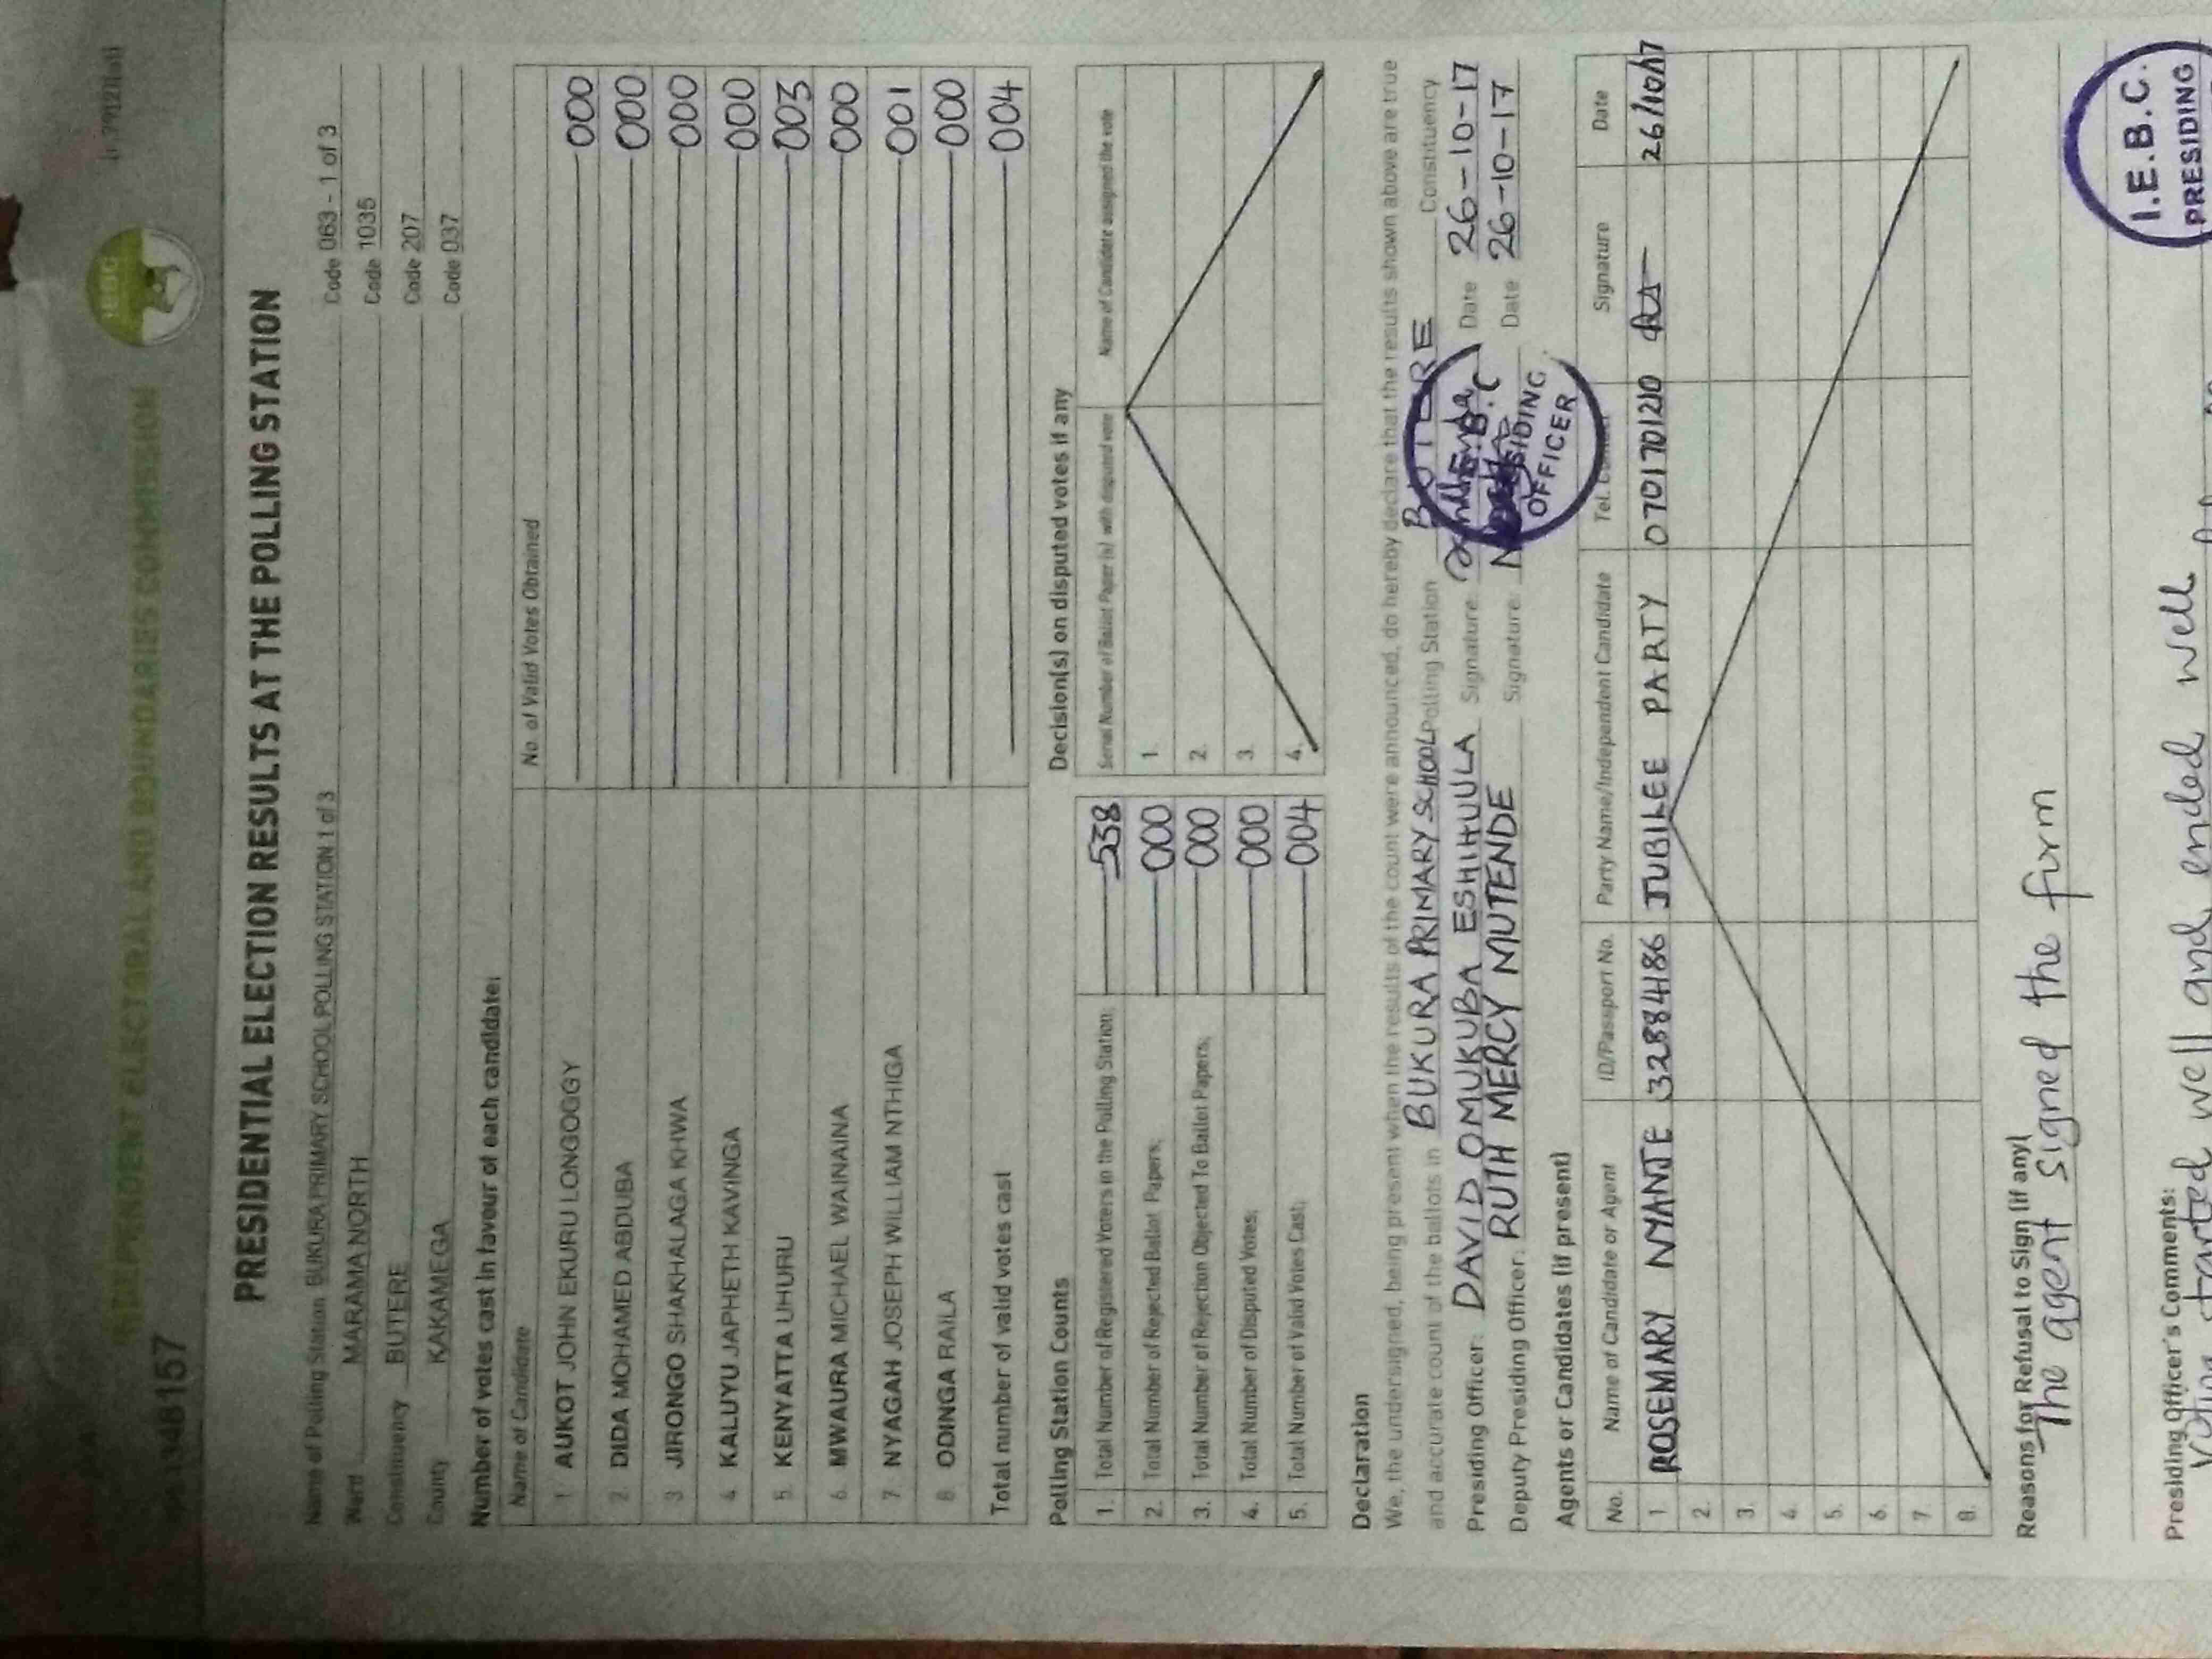 INDEPENDENT ELECTORAL AND BOUNDARIES COMMISSION
IEBC
PRESIDENTIAL ELECTION RESULTS AT THE POLLING STATION
Name of Polling Station BUKURA PRIMARY SCHOOL POLLING STATION 1 of 3 Code 063 - 1 of 3
Ward MARAMA NORTH Code 1035
Constituency BUTERE Code 207
County KAKAMEGA Code 037
Number of votes cast in favour of each candidate:
Name of Candidate No. of Valid Votes Obtained
1 AUKOT JOHN EKURU LONGOGGY 000
2. DIDA MOHAMED ABDUBA 000
3 JIRONGO SHAKHALAGA KHWA 000
4 KALUYU JAPHETH KAVINGA 000
5. KENYATTA UHURU 003
6. MWAURA MICHAEL WAINAINA 000
7 NYAGAH JOSEPH WILLIAM NTHIGA 001
8 ODINGA RAILA 000
Total number of valid votes cast 004
Polling Station Counts
1. Total Number of Registered Voters in the Polling Station; 538
2. Total Number of Rejected Ballot Papers; 000
3. Total Number of Rejection Objected To Ballot Papers; 000
4. Total Number of Disputed Votes; 000
5. Total Number of Valid Votes Cast; 004
Decision(s) on disputed votes if any
Serial Number of Ballot Paper (s) with disputed vote Name of Candidate assigned the vote
1.
2.
3.
4.
Declaration
We, the undersigned, being present when the results of the count were announced, do hereby declare that the results shown above are true
and accurate count of the ballots in BUKURA PRIMARY SCHOOL Polling Station BUTERE Constituency
Presiding Officer: DAVID OMUKUBA ESHIHULA Signature: Date 26-10-17
Deputy Presiding Officer: RUTH MERCY MUTENDE Signature: Date 26-10-17
I.E.B.C
PRESIDING
OFFICER
Agents or Candidates (if present)
No. Name of Candidate or Agent ID/Passport No. Party Name/Independent Candidate Tel. Signature Date
1 ROSEMARY NYANJE 32884186 JUBILEE PARTY 0701701210 26/10/17
2.
3.
4.
5.
6
7.
8.
Reasons for Refusal to Sign (if any)
The agent signed the firm
Presiding Officer's Comments:
started well and ended well
I.E.B.C.
PRESIDING